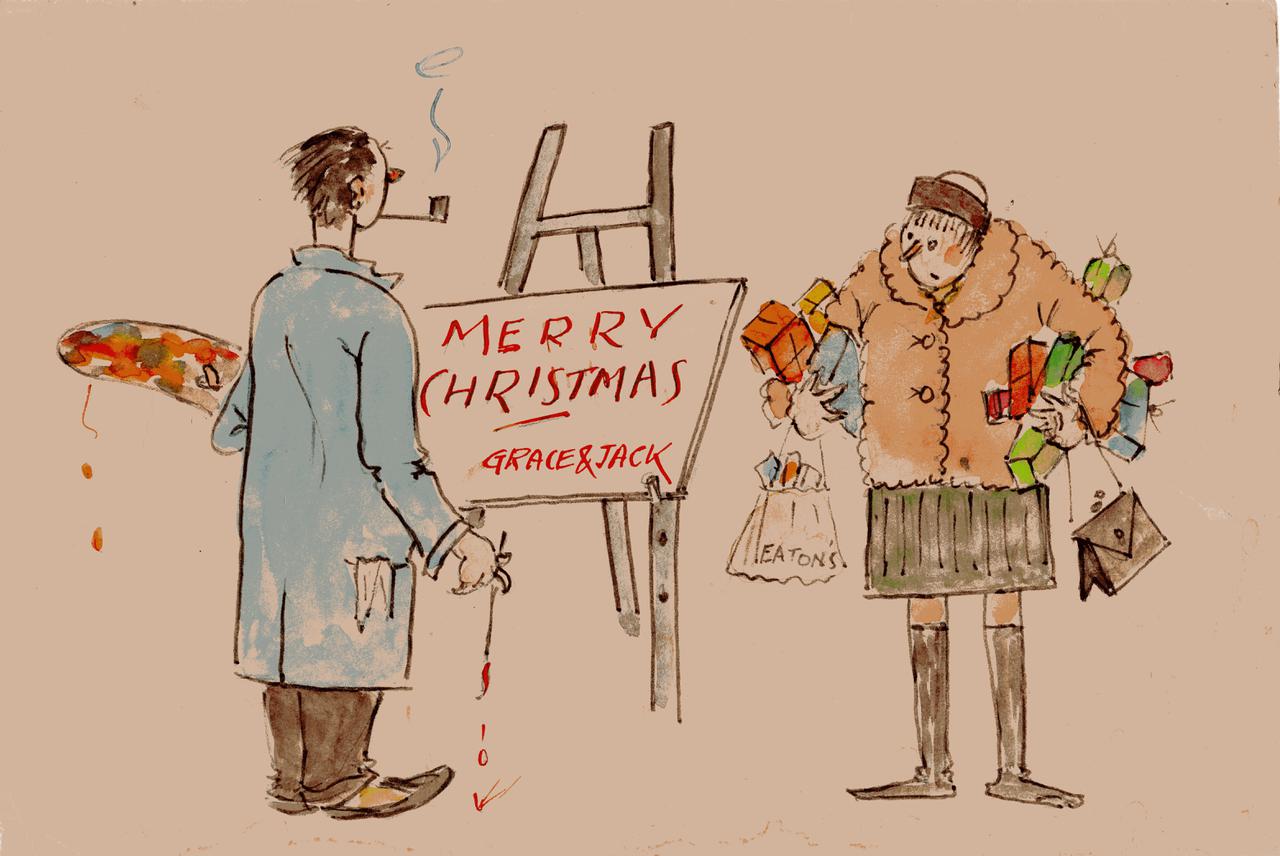 MERRY
CHRISTMAS
GRACE&JACK
EATON'S